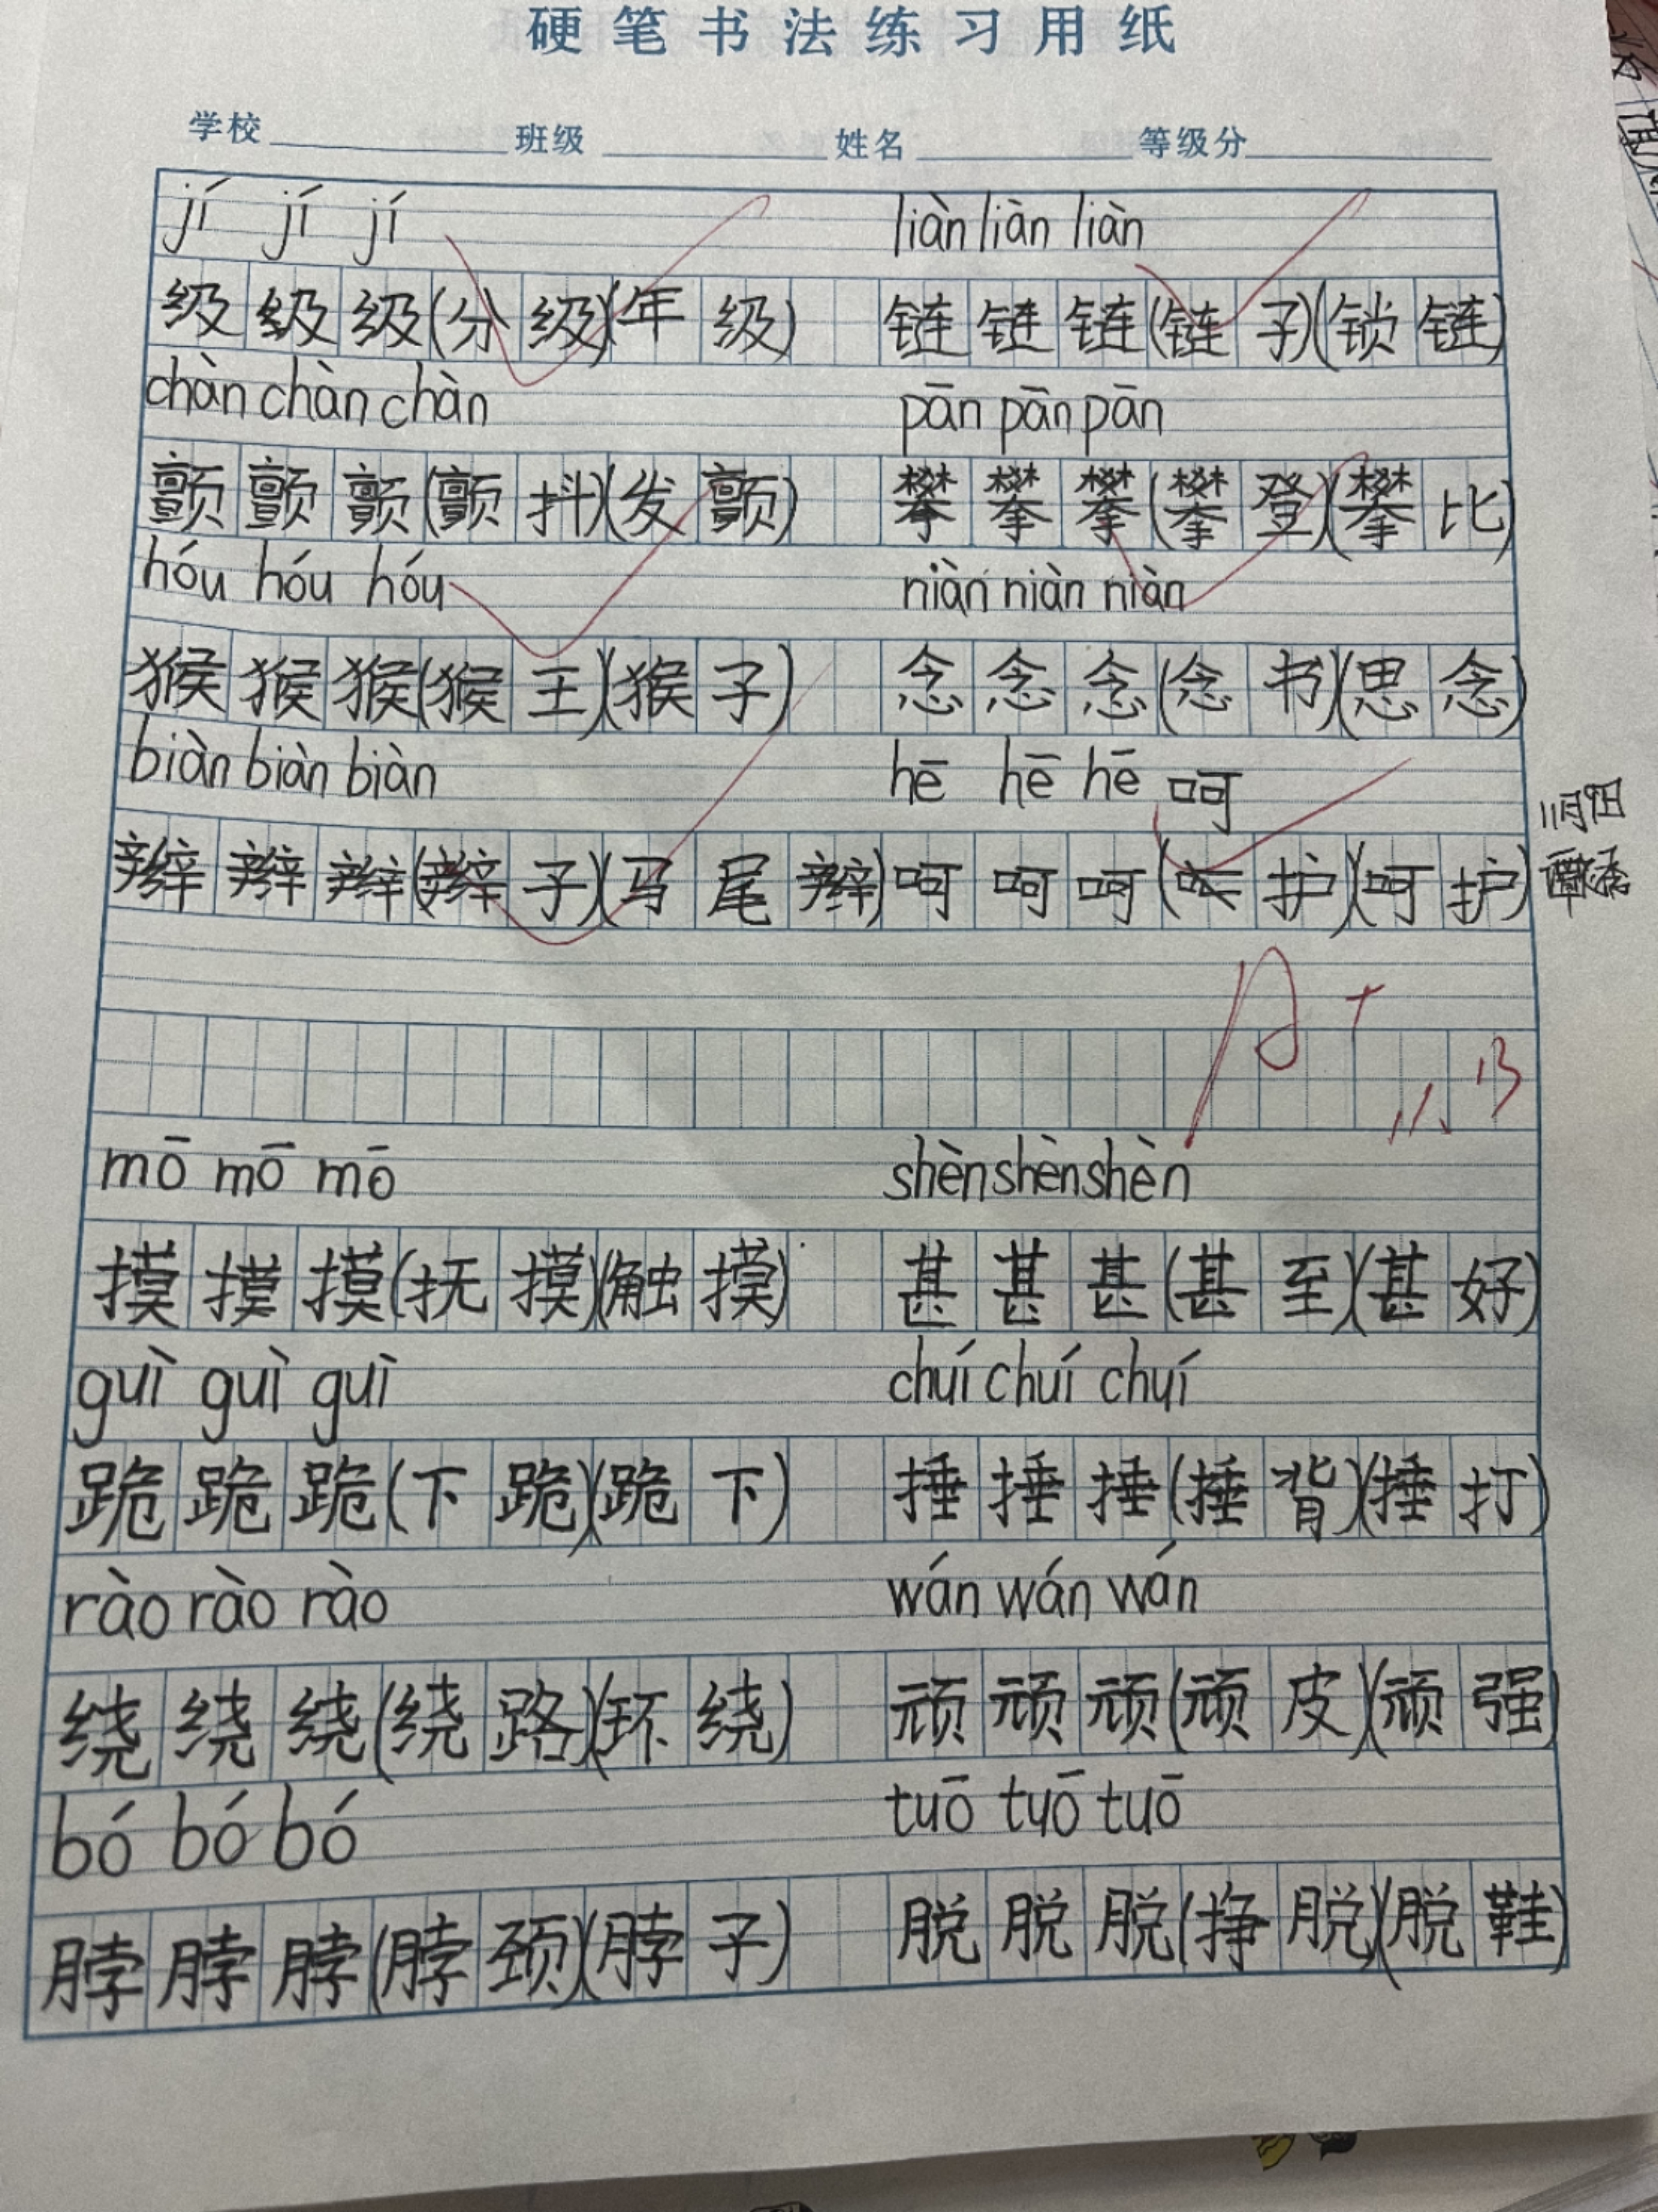 硬笔书法练习用纸
学校 班级 姓名 等级分
jí jí jí liàn liàn liàn
级级级(分级)(年级) 链链链(链子)(锁链)
chàn chàn chàn pān pān pān
颤颤颤(颤抖)(发颤) 攀攀攀(攀登)(攀比)
hóu hóu hóu niàn niàn niàn
猴猴猴(猴王)(猴子) 念念念(念书)(思念)
biàn biàn biàn hē hē hē 呵
辫辫辫(辫子)(马尾辫) 呵呵呵(护)(呵护)
11月9日
A+
11.13
mō mō mō shèn shèn shèn
摸摸摸(抚摸)(触摸) 甚甚甚(甚至)(甚好)
guì guì guì chuí chuí chuí
跪跪跪(下跪)(跪下) 捶捶捶(捶背)(捶打)
rào rào rào wán wán wán
绕绕绕(绕路)(环绕) 顽顽顽(顽皮)(顽强)
bó bó bó tuō tuō tuō
脖脖脖(脖颈)(脖子) 脱脱脱(挣脱)(脱鞋)